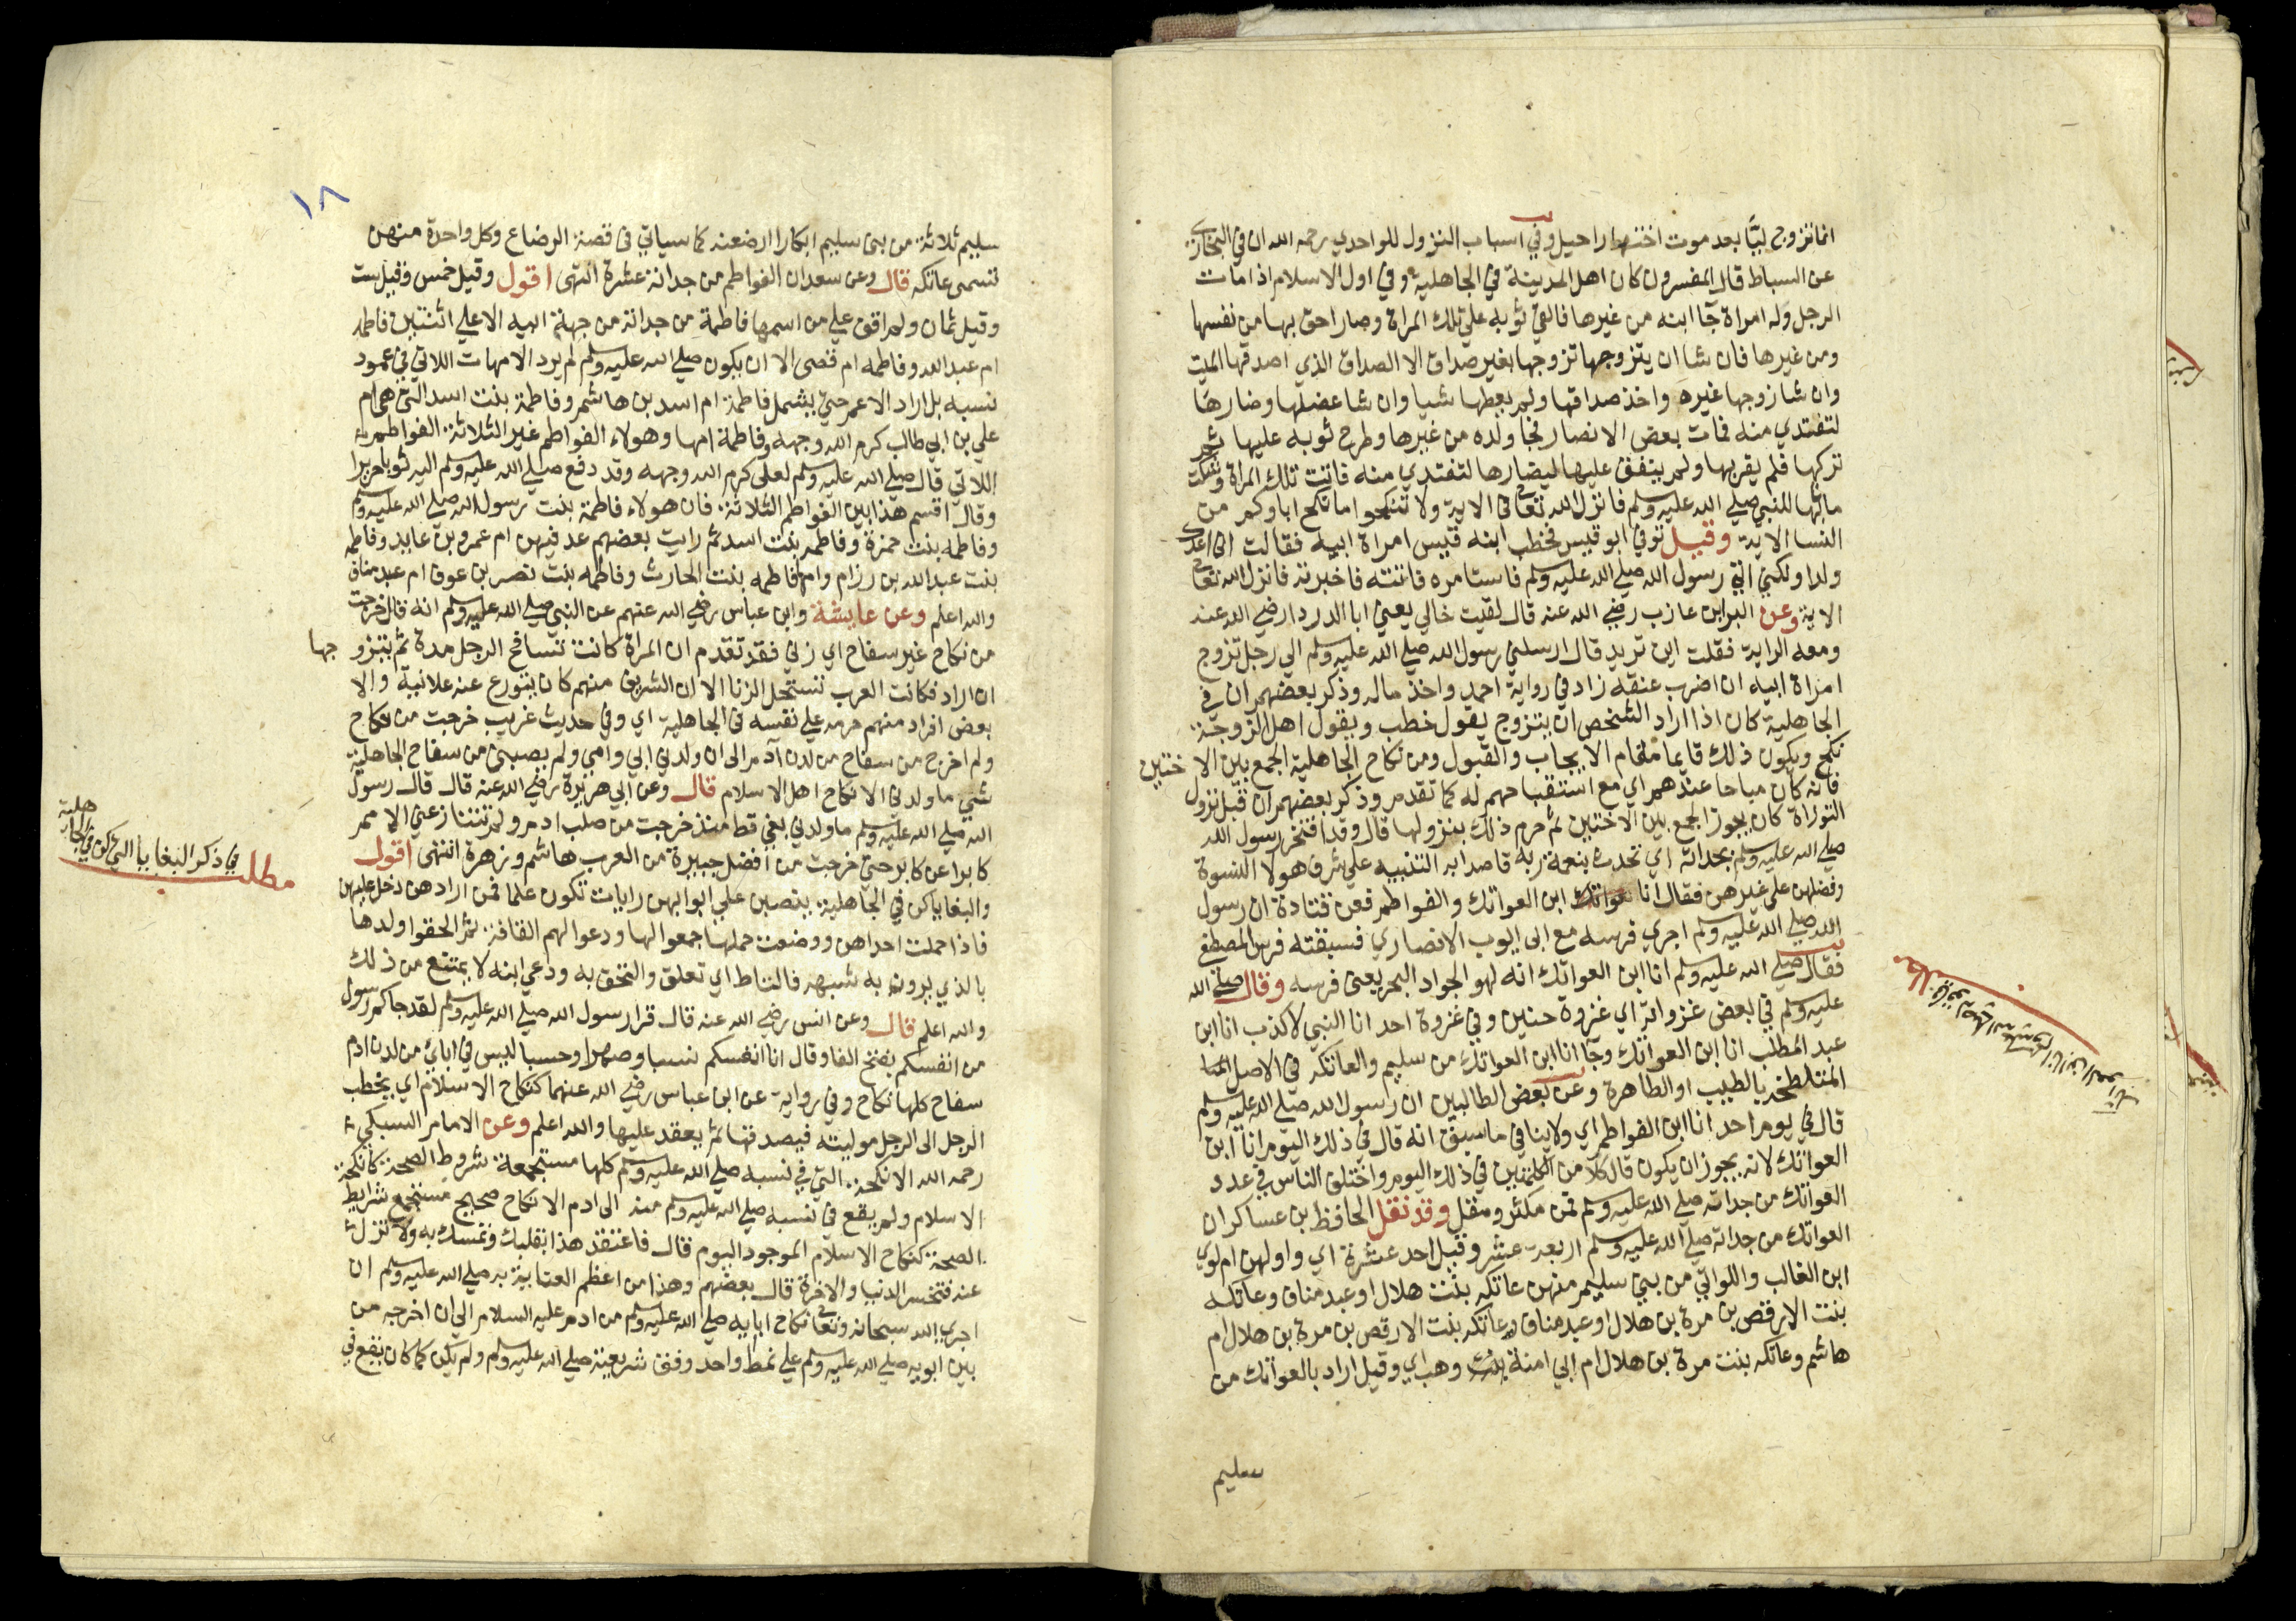 انما تزوج ليّا بعد موت اختها راحيل وفي اسباب النزول للواحدي رحمه الله ان في البخاري
عن اسباط قال المفسرون كان اهل المدينة في الجاهلية وفي اول الاسلام اذا مات
الرجل وله امراة جا ابنه من غيرها فالقى ثوبه على تلك المراة وصار احق بها من نفسها
ومن غيرها فان شا ان يتزوجها تزوجها بغير صداق الا الصداق الذي اصدقها الميت
وان شا زوجها غيره واخذ صداقها ولم يعطها شيا وان شا عضلها وضارها
لتفتدي منه فمات بعض الانصار فجا ولده من غيرها وطرح ثوبه عليها ثم
تركها فلم يقربها ولم ينفق عليها ليضارها لتفتدي منه فاتت تلك المراة وشكت
ما بها للنبي صلى الله عليه وسلم فانزل الله تعالى الاية ولا تنكحوا ما نكح اباوكم من
النسا الاية وقيل توفي ابو قيس فخطب ابنه قيس امراة ابيه فقالت اني اعدك
ولدا ولكني اتي رسول الله صلى الله عليه وسلم فاستامره فاتته فاخبرته فانزل الله تعالى
الاية وعن البرا بن عازب رضي الله عنه قال لقيت خالي يعني ابا الدردا رضي الله عنه
ومعه الراية فقلت اين تريد قال ارسلني رسول الله صلى الله عليه وسلم الى رجل تزوج
امراة ابيه ان اضرب عنقه زاد في رواية احمد واخذ ماله وذكر بعضهم ان في
الجاهلية كان اذا اراد الشخص ان يتزوج يقول خطب ويقول اهل الزوجة
نكح ويكون ذلك قايما مقام الايجاب والقبول ومن نكاح الجاهلية الجمع بين الاختين
فانه كان مباحا عندهم اي مع استقباحهم له كما تقدم وذكر بعضهم ان قبل نزول
التوراة كان يجوز الجمع بين الاختين ثم حرم ذلك بنزولها قال وقد افتخر رسول الله
صلى الله عليه وسلم بجداته اي تحدث بنعمة ربه قاصدا به التنبيه على شرف هولا النسوة
وفضلهن على غيرهن فقال انا ابن العواتك والفواطم فعن قتادة ان رسول
الله صلى الله عليه وسلم اجرى فرسه مع ابي ايوب الانصاري فسبقته فرس المصطفى
فقال صلى الله عليه وسلم انا ابن العواتك انه لهو الجواد البحر يعني فرسه وقال صلى الله
عليه وسلم في بعض غزواته اي غزوة حنين وفي غزوة احد انا النبي لا كذب انا ابن
عبد المطلب انا ابن العواتك وجا انا ابن العواتك من سليم والعاتكة في الاصل
المتلطخة بالطيب او الطاهرة وعن بعض الطالبين ان رسول الله صلى الله عليه وسلم
قال في يوم احد انا ابن الفواطم اي ولا ينافي ما سبق انه قال في ذلك اليوم انا ابن
العواتك لانه يجوز ان يكون قال كلا من الكلمتين في ذلك اليوم واختلف الناس في عدد
العواتك من جداته صلى الله عليه وسلم فمن مكثر ومقل وقد نقل الحافظ بن عساكر ان
العواتك من جداته صلى الله عليه وسلم اربعة عشر وقيل احد عشرة اي واولهن ام لوي
ابن الغالب واللواتي من بني سليم منهن عاتكه بنت هلال او عبد مناف وعاتكه
بنت الارقص بن مرة بن هلال او عبد مناف وعاتكه بنت الارقص بن مرة بن هلال ام
هاشم وعاتكه بنت مرة بن هلال ام ابي امنة بنت وهب اي وقيل اراد بالعواتك من
سليم
مطلب
١٨
سليم ثلاثة من بني سليم ابكارا ارضعنه كما سياتي في قصة الرضاع وكل واحدة منهن
تسمى عاتكه قال وعن سعد ان الفواطم من جداته عشرة انتهى اقول وقيل خمس وقيل ست
وقيل ثمان ولم اقف على من اسمها فاطمة من جداته من جهة ابيه الا على اثنتين فاطمه
ام عبد الله وفاطمه ام قصى الا ان يكون صلى الله عليه وسلم لم يرد الامهات اللاتي في عمود
نسبه بل اراد الاعم حتى يشمل فاطمة ام اسد بن هاشم وفاطمة بنت اسد التي هي ام
علي بن ابي طالب كرم الله وجهه وفاطمة امها وهولاء الفواطم غير الثلاثة الفواطم
اللاتي قال صلى الله عليه وسلم لعلى كرم الله وجهه وقد دفع صلى الله عليه وسلم اليه ثوبا حريرا
وقال اقسم هذا بين الفواطم الثلاثة فان هولاء فاطمة بنت رسول الله صلى الله عليه وسلم
وفاطمه بنت حمزة وفاطمه بنت اسد ثم رايت بعضهم عد فيهن ام عمرو بن عايد وفاطمه
بنت عبد الله بن رزام وامها فاطمه بنت الحارث وفاطمه بنت نصر بن عوف ام عبد مناف
والله اعلم وعن عايشة وابن عباس رضي الله عنهم عن النبي صلى الله عليه وسلم انه قال خرجت
من نكاح غير سفاح اي زنى فقد تقدم ان المراة كانت تسافح الرجل مدة ثم يتزوجها
ان اراد فكانت العرب تستحل الزنا الا ان الشريف منهم كان يتورع عنه علانية والا
بعض افراد منهم حرمه على نفسه في الجاهلية اي وفي حديث غريب خرجت من نكاح
ولم اخرج من سفاح من لدن آدم الى ان ولدني ابي وامي ولم يصبني من سفاح الجاهلية
شي ما ولدني الا نكاح اهل الاسلام قال وعن ابي هريرة رضي الله عنه قال قال رسول
الله صلى الله عليه وسلم ما ولدني بغي قط منذ خرجت من صلب ادم ولم تتنازعني الامم
كابرا عن كابر حتى خرجت من افضل حيين من العرب هاشم وزهرة انتهى اقول
والبغايا كن في الجاهلية ينصبن على ابوابهن رايات تكون علما فمن ارادهن دخل عليهن
فاذا حملت احداهن ووضعت حملها جمعوا لها ودعوا لهم القافة ثم الحقوا ولدها
بالذي يرونه به شبهه فالتاط اي تعلق والتحق به ودعي ابنه لا يمتنع من ذلك
والله اعلم قال وعن انس رضي الله عنه قال قرا رسول الله صلى الله عليه وسلم لقد جاكم رسول
من انفسكم بفتح الفا وقال انا انفسكم نسبا وصهرا وحسبا ليس في ابائي من لدن ادم
سفاح كلها نكاح وفي رواية عن ابن عباس رضي الله عنهما كنكاح الاسلام اي يخطب
الرجل الى الرجل موليته فيصدقها ثم يعقد عليها والله اعلم وعن الامام السبكي
رحمه الله الانكحة التي في نسبه صلى الله عليه وسلم كلها مستجمعة شروط الصحة كانكحة
الاسلام ولم يقع في نسبه صلى الله عليه وسلم منه الى ادم الا نكاح صحيح مستجمع شرايط
الصحة كنكاح الاسلام الموجود اليوم قال فاعتقد هذا بقلبك وتمسك به ولا تزل
عنه فتخسر الدنيا والاخرة قال بعضهم وهذا من اعظم العناية به صلى الله عليه وسلم ان
اجرى الله سبحانه وتعالى نكاح ابايه صلى الله عليه وسلم من ادم عليه السلام الى ان اخرجه من
بين ابويه صلى الله عليه وسلم على نمط واحد وفق شريعته صلى الله عليه وسلم ولم يكن كما كان يقع في
مطلب في ذكر البغايا التي كن في الجاهلية